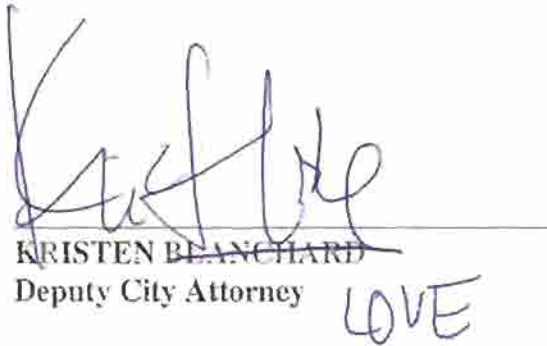 KRISTEN BLANCHARD
Deputy City Attorney
LOVE